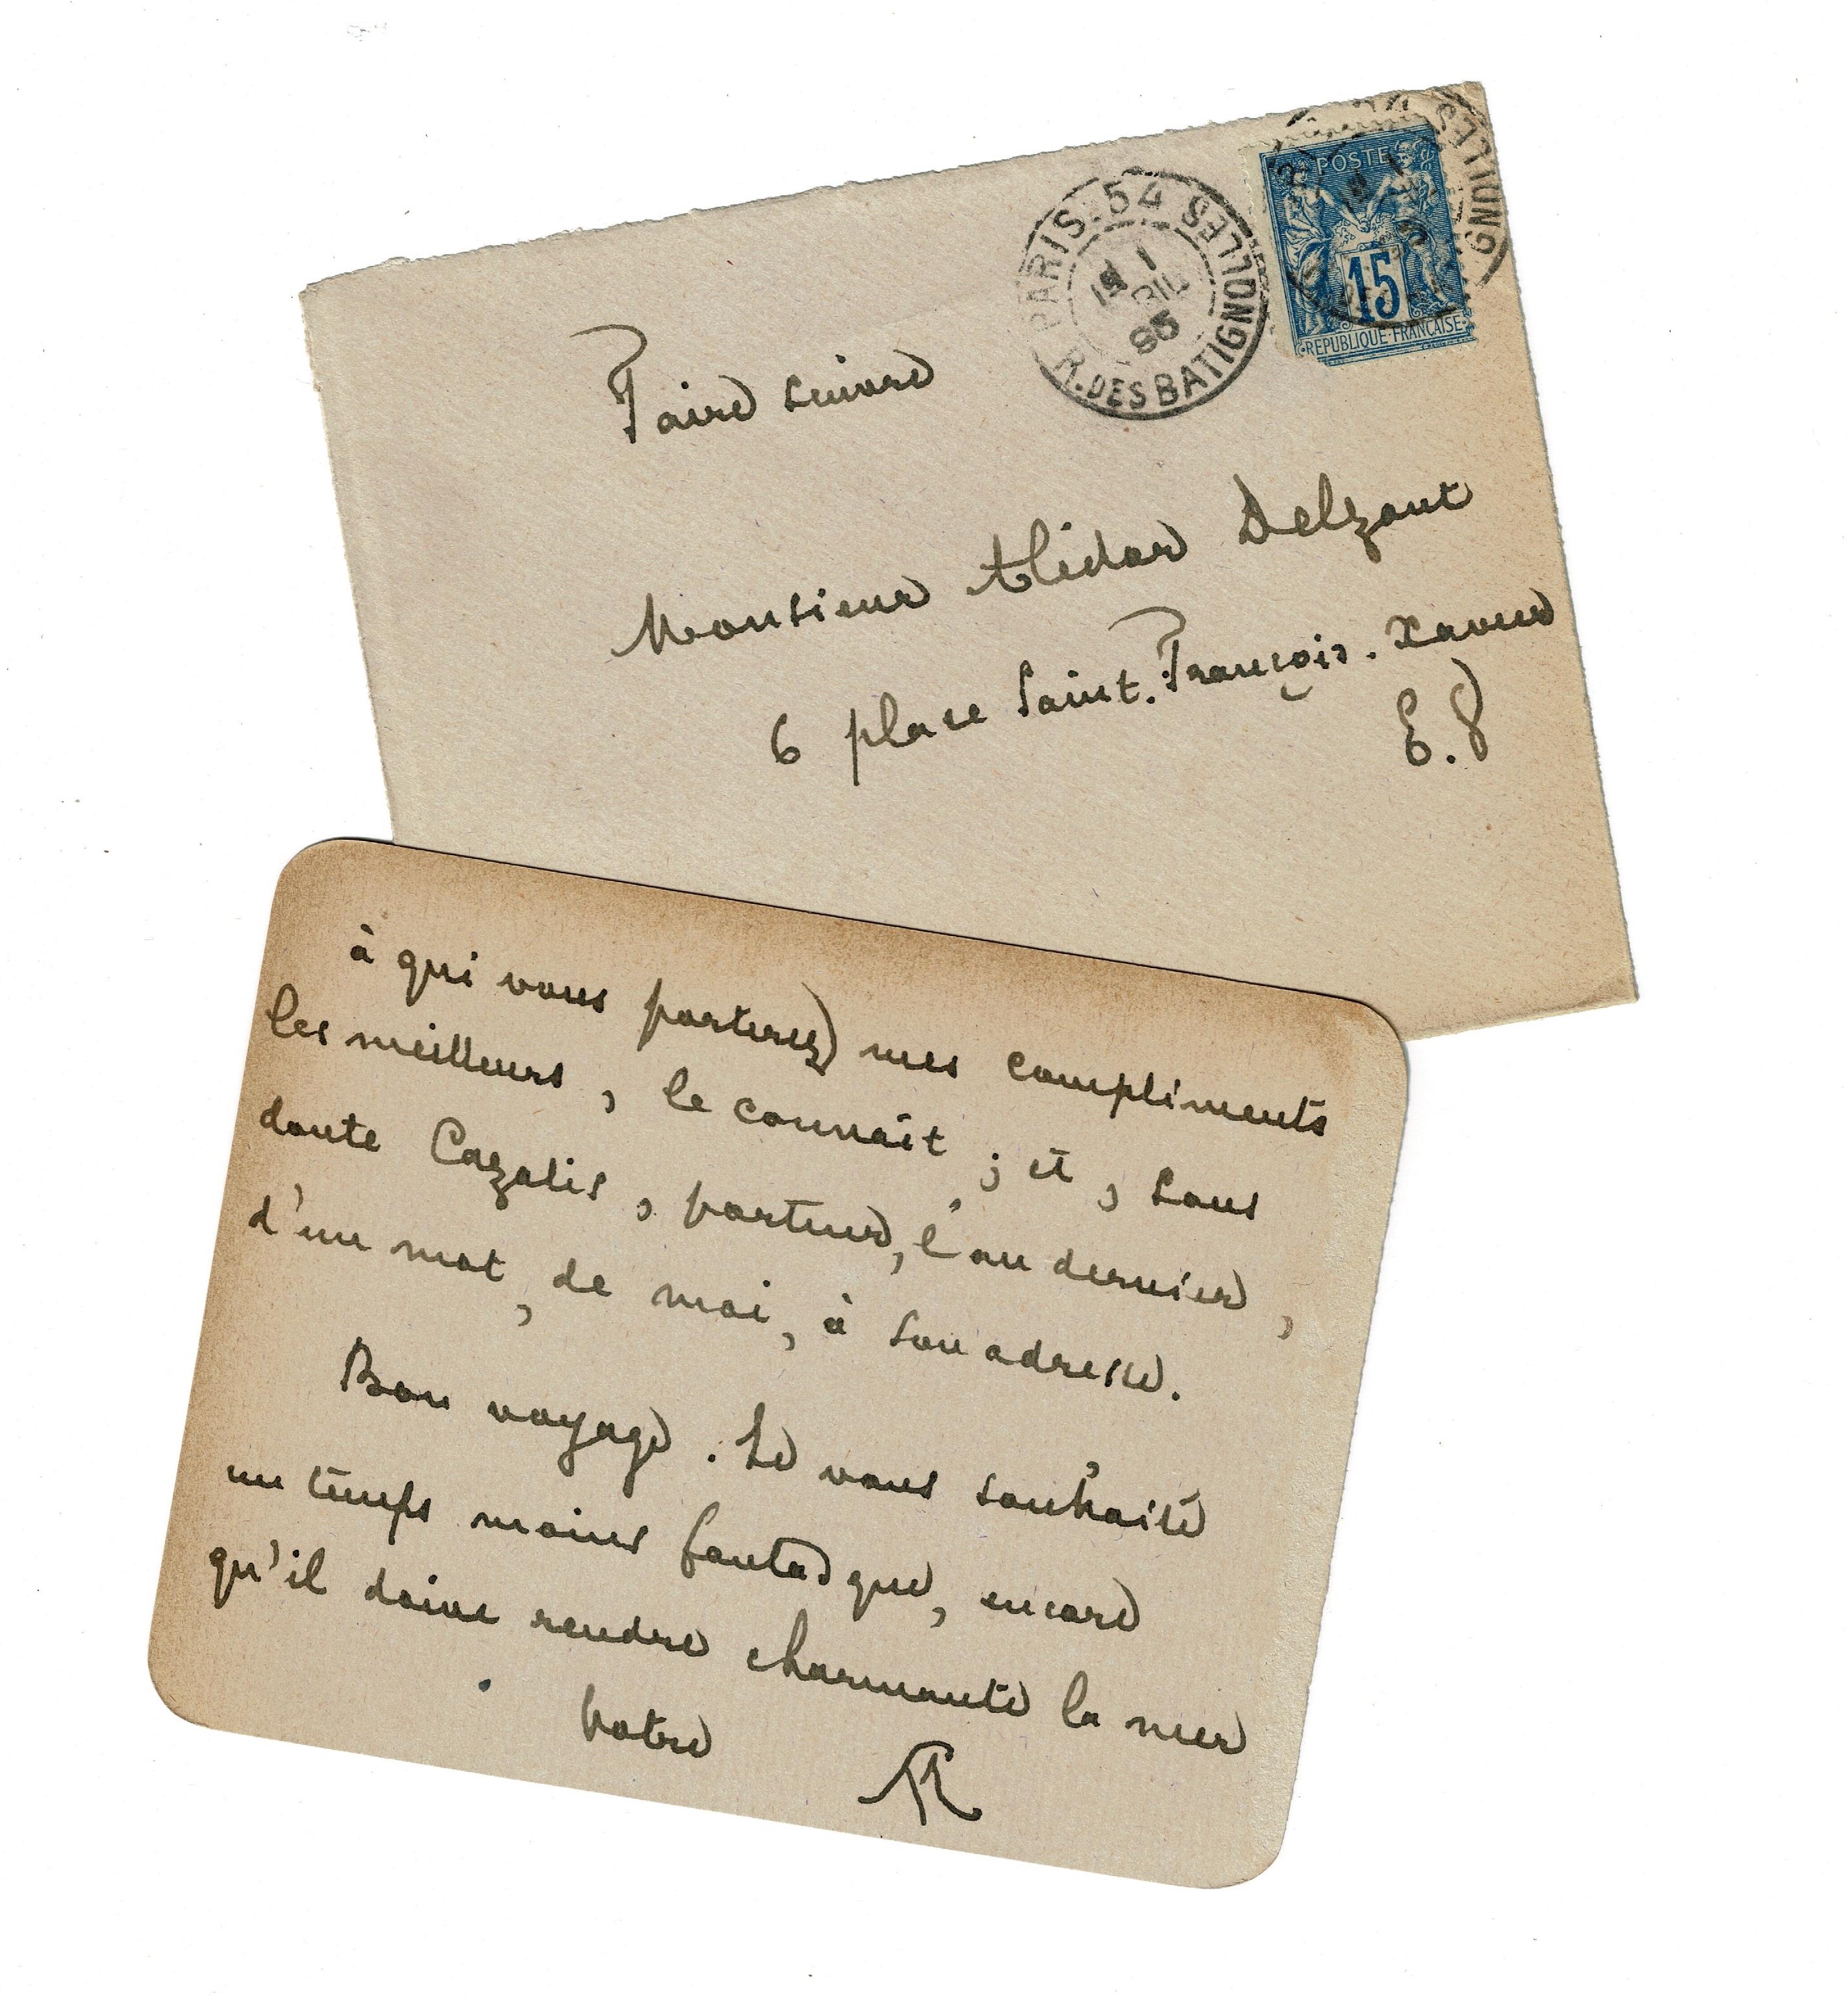 PARIS. 54
R. DES BATIGNOLLES
95
POSTE
15
REPUBLIQUE FRANCAISE
Faire suivre
Monsieur Alidor Delzant
6 place Saint. François. Xavier
E.V
à qui vous porterez mes compliments
les meilleurs, le connaît ; et, sans
doute Cazalis, porteur, l'an dernier,
d'un mot, de moi, à son adresse.
Bon voyage. Je vous souhaite
un temps moins fantasque, encore
qu'il doive rendre charmante la mer
Votre